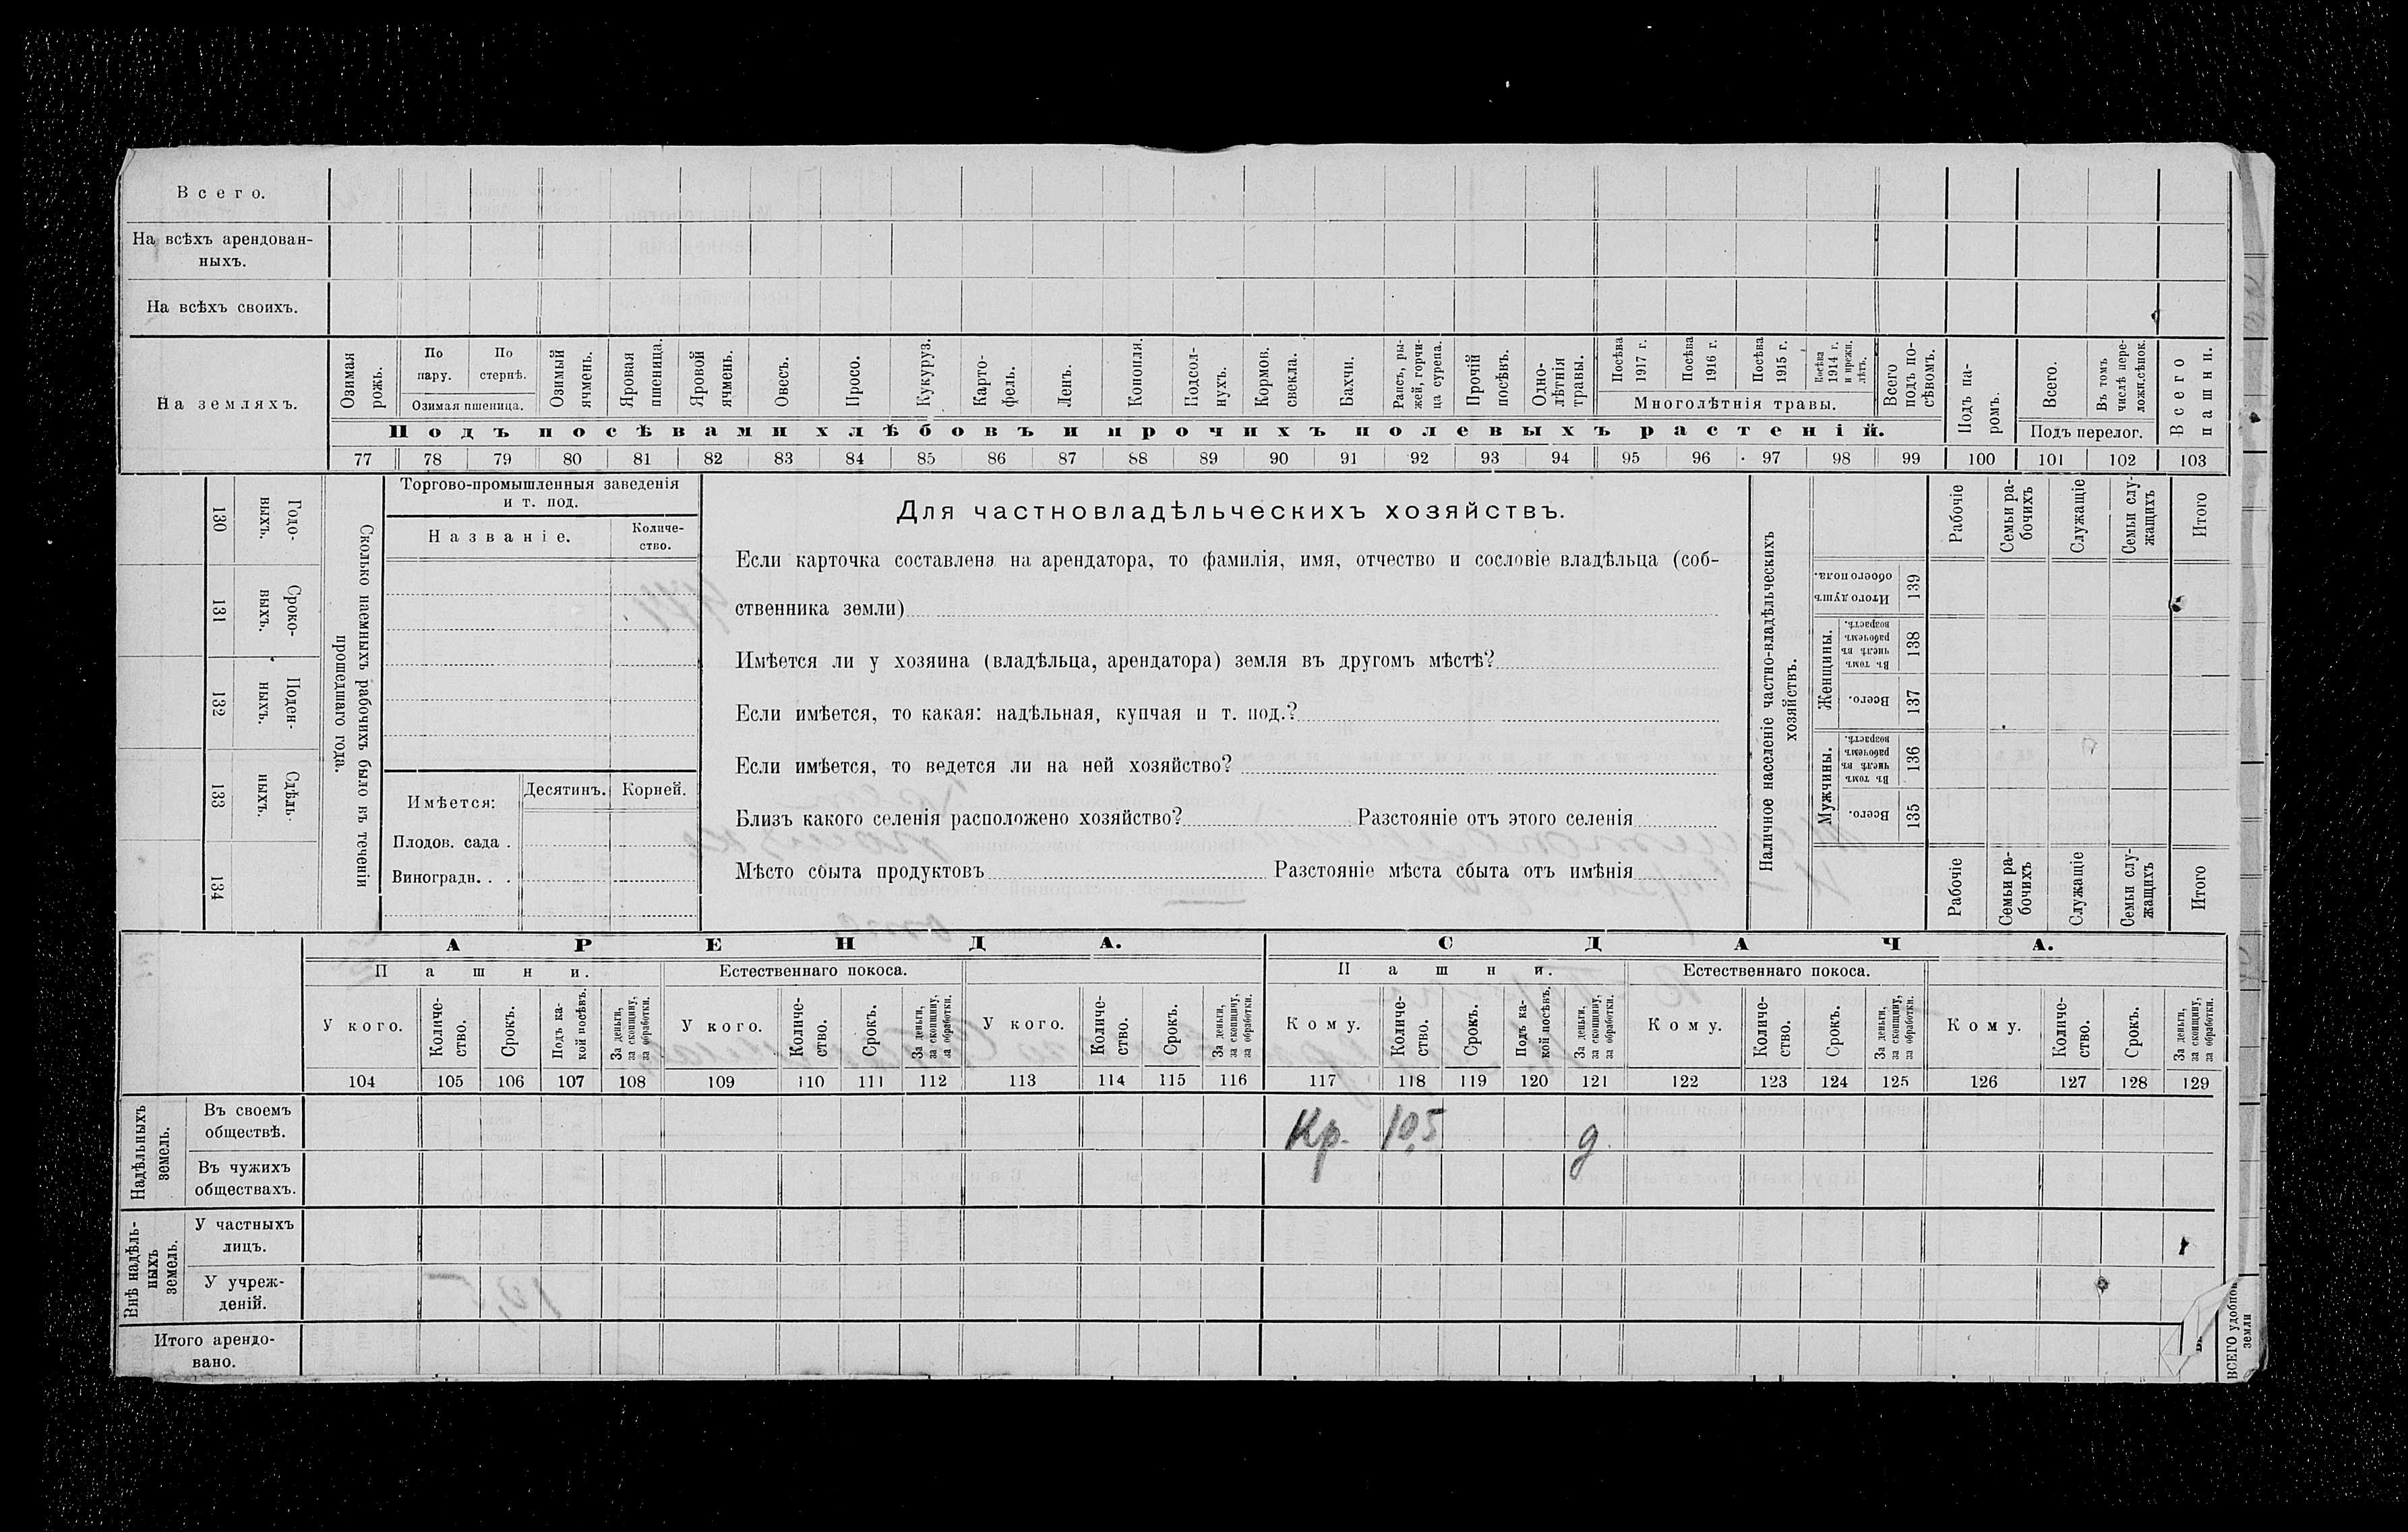 Всего.
На всѣхъ арендован-
ныхъ.
На всѣхъ своихъ.
На земляхъ.
Озимая рожь.
По пару.
По стернѣ.
Озимая пшеница.
Озимый ячмень.
Яровая пшеница.
Яровой ячмень.
Овесъ.
Просо.
Кукуруз.
Карто-
фель.
Ленъ.
Конопля.
Подсол-
нухъ.
Кормов. свекла.
Бахчи.
Рапсъ, ры-
жей, горчи-
ца сурепа.
Прочій посѣвъ.
Одно-
лѣтнія травы.
Посѣва 1917 г.
Посѣва 1916 г.
Посѣва 1915 г.
Посѣва 1914 г. и прежн. лѣтъ.
Многолѣтнія травы.
Всего подъ по-
сѣвомъ.
Подъ па-
ромъ.
Всего.
Въ томъ числѣ пере-
ложн.сѣнок.
Подъ перелог.
Всего пашни.
Подъ посѣвами хлѣбовъ и прочихъ полевыхъ растеній.
77 78 79 80 81 82 83 84 85 86 87 88 89 90 91 92 93 94 95 96 97 98 99 100 101 102 103
130 Годо-
выхъ.
131 Сроко-
выхъ.
132 Поден-
ныхъ.
133 Сдѣль-
ныхъ.
134
Сколько наемныхъ рабочихъ было въ теченіи
прошедшаго года.
Торгово-промышленныя заведенія
и т. под.
Названіе.
Количе-
ство.
Имѣется:
Десятинъ.
Корней.
Плодов. сада .
Виноградн. . .
Для частновладѣльческихъ хозяйствъ.
Если карточка составлена на арендатора, то фамилія, имя, отчество и сословіе владѣльца (соб-
ственника земли)
Имѣется ли у хозяина (владѣльца, арендатора) земля въ другомъ мѣстѣ?
Если имѣется, то какая: надѣльная, купчая и т. под.?
Если имѣется, то ведется ли на ней хозяйство?
Близъ какого селенія расположено хозяйство? Разстояніе отъ этого селенія
Мѣсто сбыта продуктовъ Разстояніе мѣста сбыта отъ имѣнія
Наличное населеніе частно-владѣльческихъ
хозяйствъ.
Рабочіе
Семьи ра-
бочихъ
Служащіе
Семьи слу-
жащихъ
Итого
Итого душъ обоего пола. 139
Женщины.
Въ томъ числѣ въ рабочемъ возрастѣ. 138
Всего. 137
Мужчины.
Въ томъ числѣ въ рабочемъ возрастѣ. 136
Всего. 135
Рабочіе
Семьи ра-
бочихъ
Служащіе
Семьи слу-
жащихъ
Итого
АРЕНДА.
СДАЧА.
Пашни.
Естественнаго покоса.
Пашни.
Естественнаго покоса.
У кого.
Количе-
ство.
Срокъ.
Подъ ка-
кой посѣвъ.
За деньги, за скопщину, за обработки.
У кого.
Количе-
ство.
Срокъ.
За деньги, за скопщину, за обработки.
У кого.
Количе-
ство.
Срокъ.
За деньги, за скопщину, за обработки.
Кому.
Количе-
ство.
Срокъ.
Подъ ка-
кой посѣвъ.
За деньги, за скопщину, за обработки.
Кому.
Количе-
ство.
Срокъ.
За деньги, за скопщину, за обработки.
Кому.
Количе-
ство.
Срокъ.
За деньги, за скопщину, за обработки.
104 105 106 107 108 109 110 111 112 113 114 115 116 117 118 119 120 121 122 123 124 125 126 127 128 129
Надѣльныхъ земель.
Въ своемъ
обществѣ.
Кр. 10,5 д.
Въ чужихъ
обществахъ.
Внѣ надѣль-
ныхъ земель.
У частныхъ
лицъ.
У учреж-
деній.
Итого арендо-
вано.
ВСЕГО удобной
земли